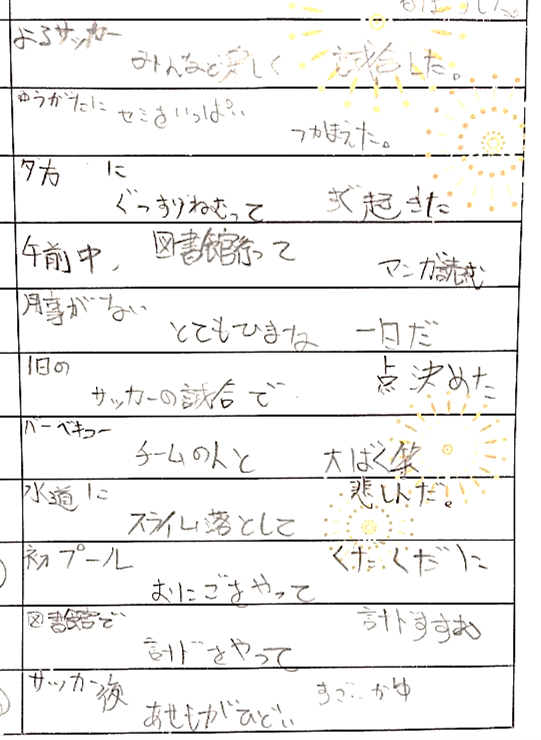 よるサッカー みんなと楽しく 試合した。
ゆうがたに セミをいっぱい つかまえた。
夕方に ぐっすりねむって すぐ起きた
午前中、図書館行って マンガ読む
用事がない とてもひまな 一日だ
1日の サッカーの試合で 点決めた
バーベキュー チームの人と 大ばく笑
水道に スライム落として 悲しんだ。
初プール おにごをやって くたくだに
図書館で 計ドをやって 計ドすすむ
サッカー後 あせもがひどい すごいかゆ